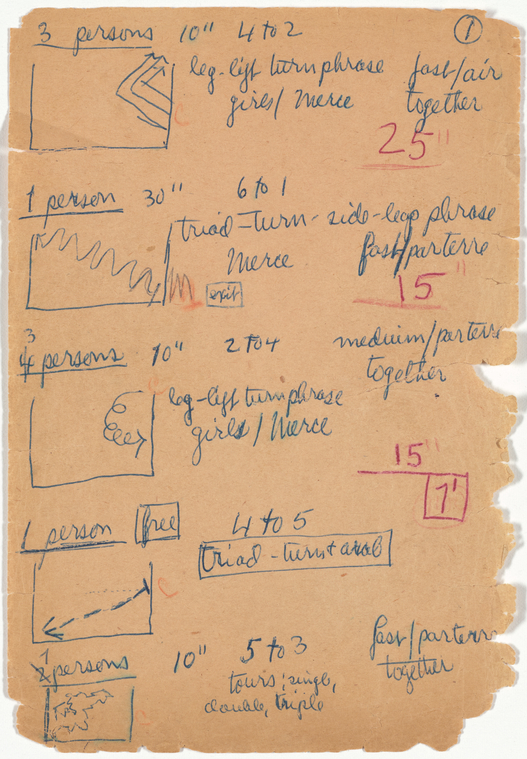 3 persons 10" 4 to 2 1
leg-lift turn phrase fast/air
girls/Merce together
25"
1 person 30" 6 to 1
triad-turn-side-leap phrase
Merce fast/parterre
exit 15"
3
4 persons 10" 2 to 4 medium/parterre
together
leg-lift turn phrase
girls/Merce
15"
1'
1 person free 4 to 5
triad-turn + arab
1
2 persons 10" 5 to 3 fast/parterre
tours; single, together
double, triple